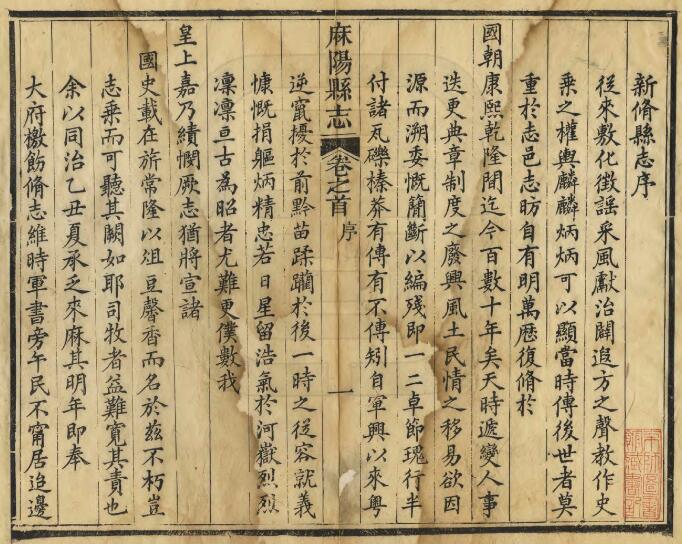 新脩縣志序
從來敷化徵謡采風獻治闢遐方之聲教作史
乘之權輿麟麟炳炳可以顯當時傳後世者莫
重於志邑志昉自有明萬歷復脩於
國朝康熙乾隆間迄今百數十年矣天時遞變人事
迭更典章制度之廢興風土民情之移易欲因
源而溯委慨簡斷以編殘即一二卓節瑰行半
付諸瓦礫榛莽有傳有不傳矧自軍興以來粤
麻陽縣志 卷之首 序 一
逆竄擾於前黔苗蹂躪於後一時之從容就義
慷慨捐軀炳精忠若日星留浩氣於河嶽烈烈
凛凛亘古為昭者尤難更僕數我
皇上嘉乃績憫厥志猶將宣諸
國史載在旂常隆以俎豆馨香而名於兹不朽豈
志乘而可聽其闕如耶司牧者益難寬其責也
余以同治乙丑夏承乏來麻其明年即奉
大府檄飭脩志維時軍書旁午民不甯居迨邊